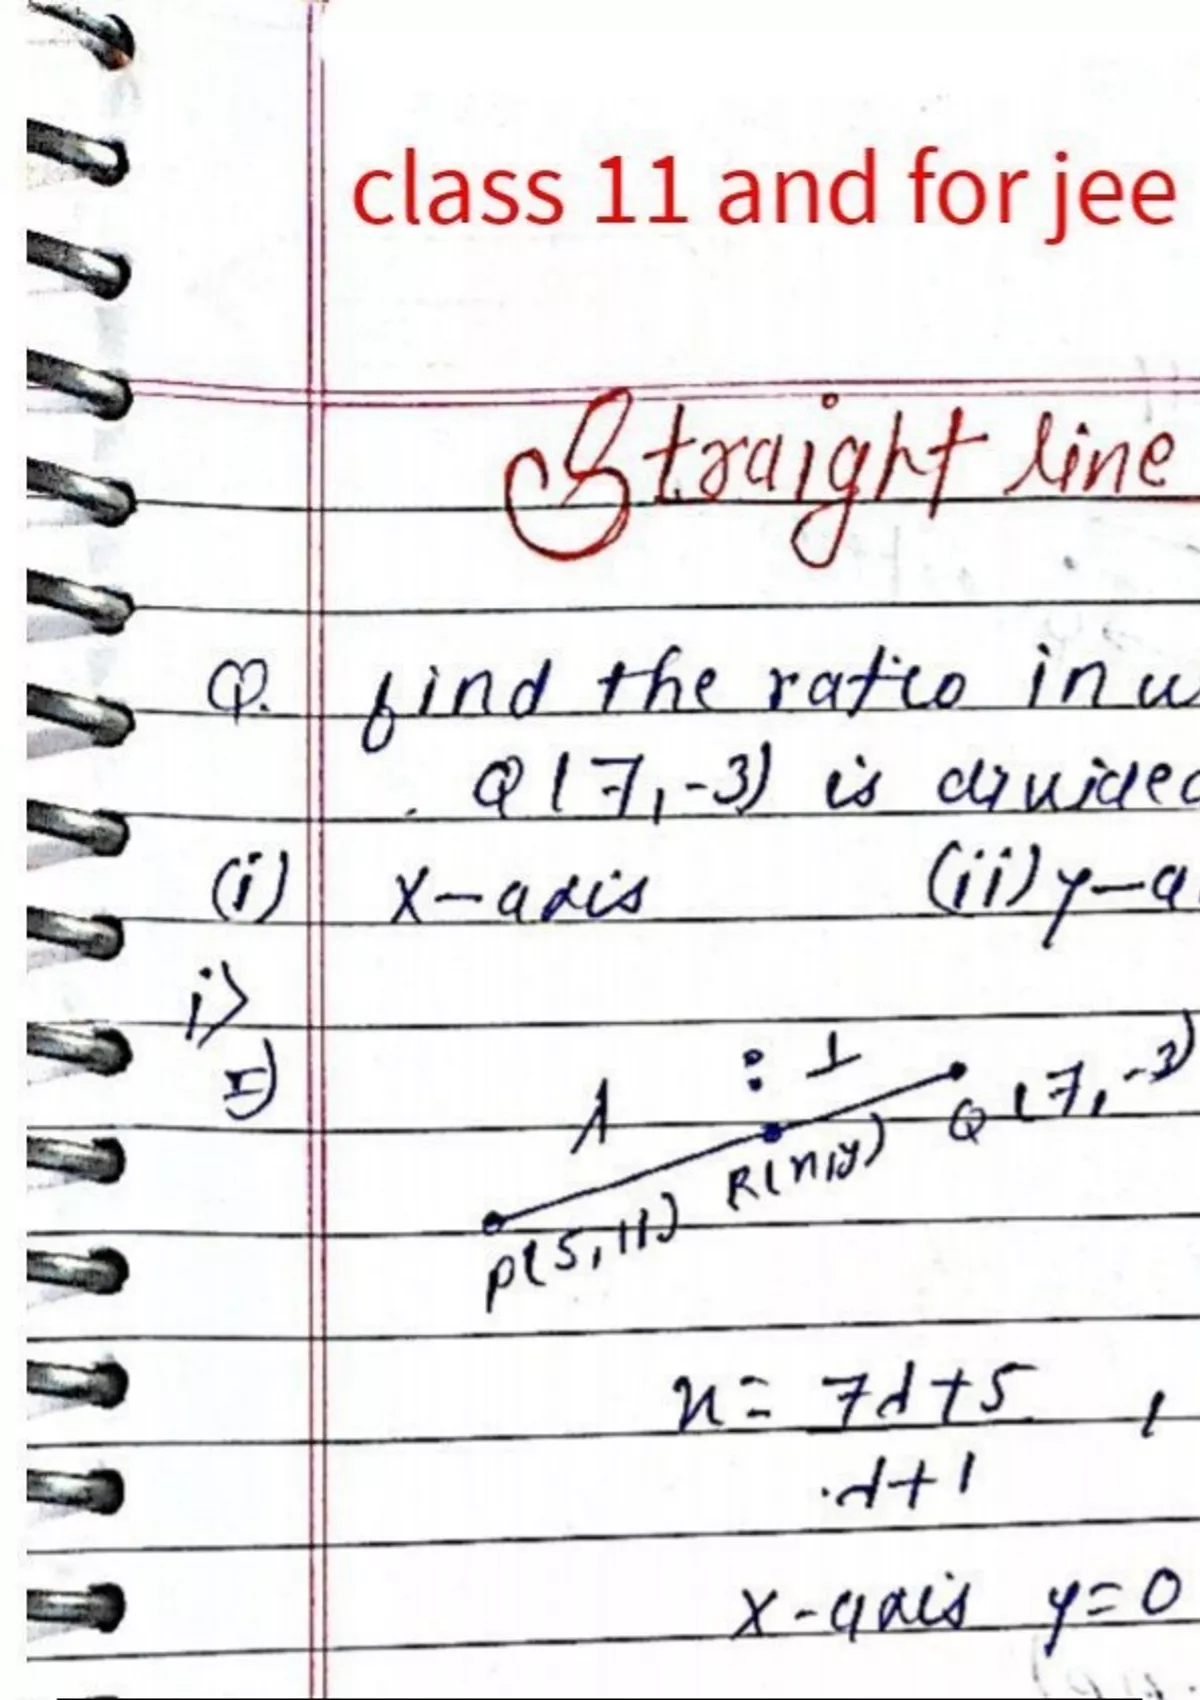 class 11 and for jee
Straight line
Q. find the ratio in
Q(7,-3) is divided
(i) x-axis (ii) y-a
i>
I)
λ : 1
P(5,11) R(x,y) Q(7,-3)
x = 7λ+5 ,
λ+1
x-axis y=0